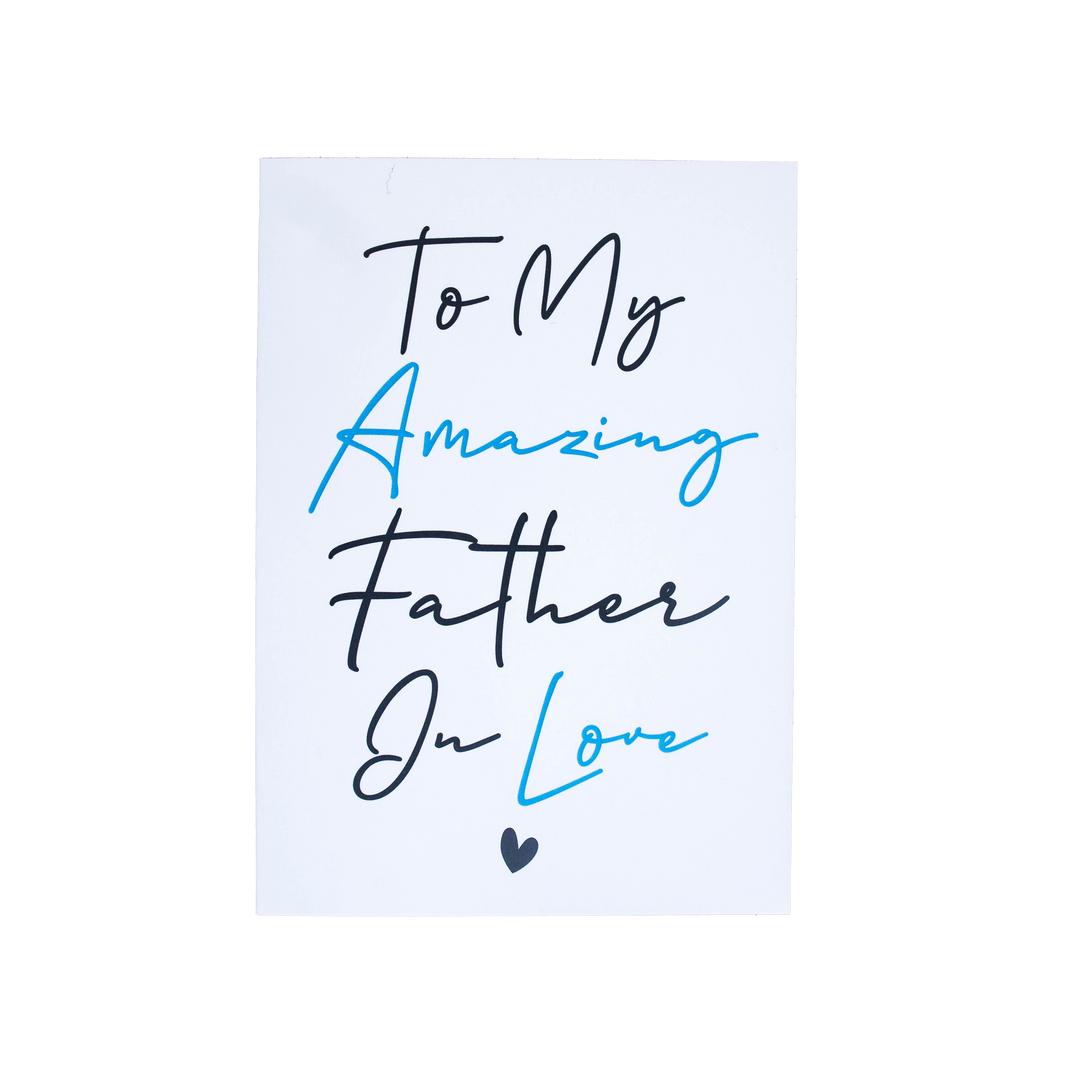 To My
Amazing
Father
In Love